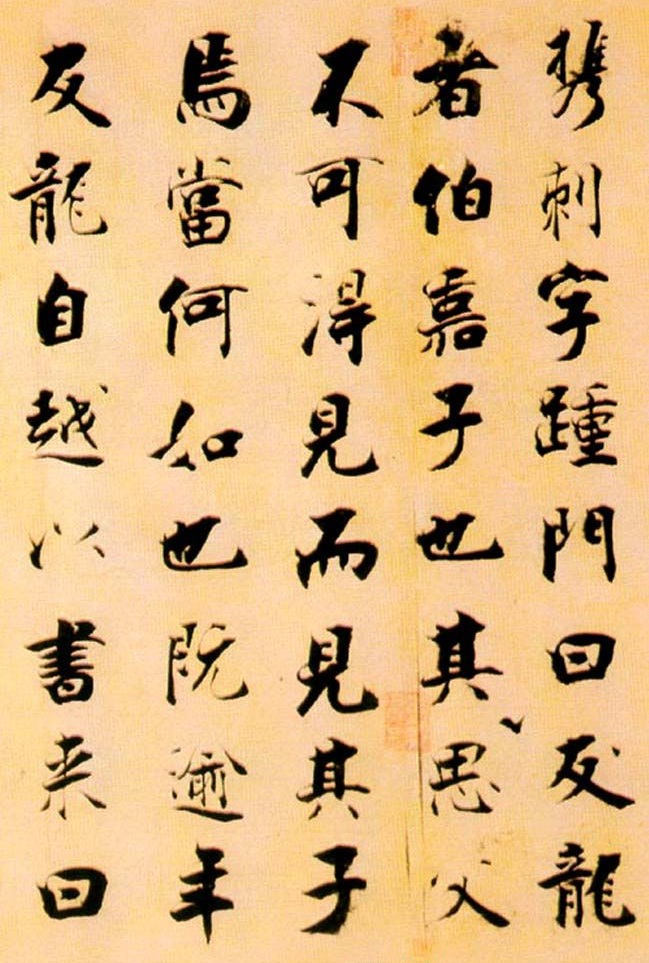 携刺字踵門曰友龍
者伯嘉子也其思父
不可得見而見其子
焉當何如也既逾年
友龍自越以書来曰